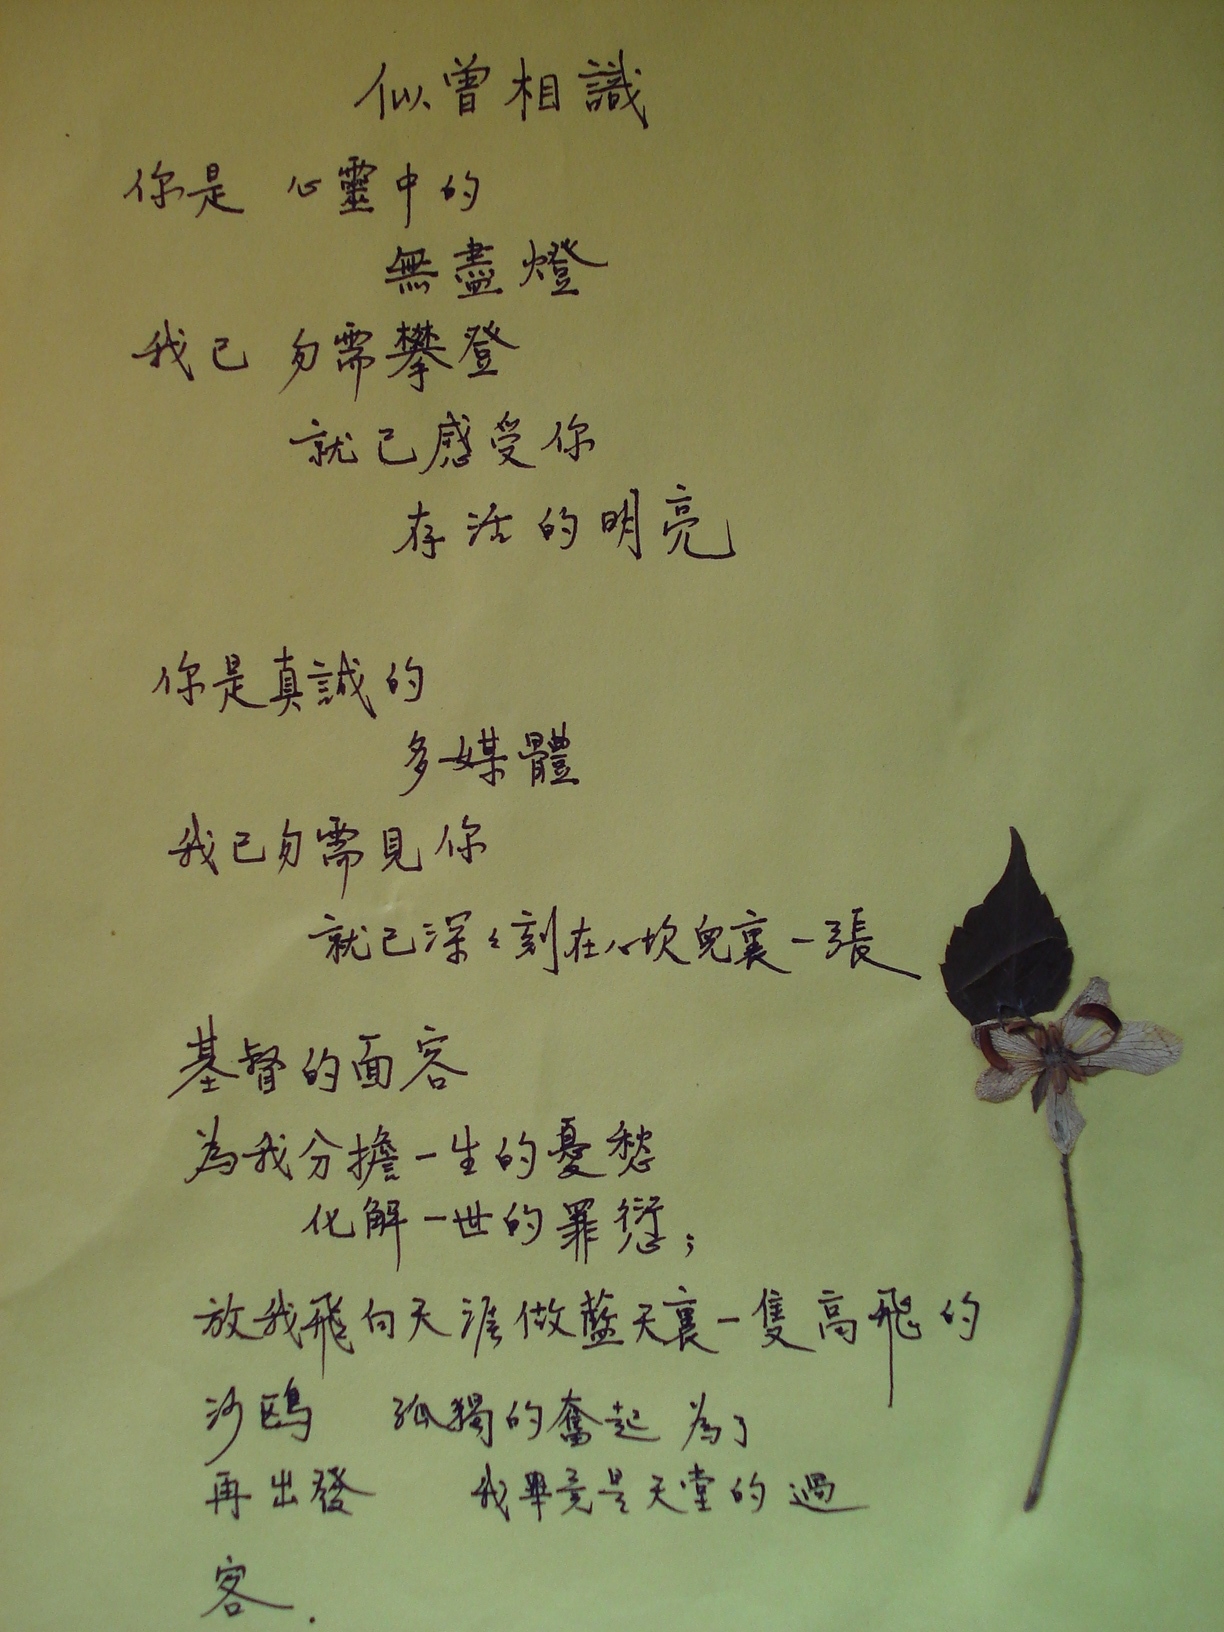 似曾相識
你是 心靈中的
無盡燈
我已 勿需攀登
就已感受你
存活的明亮
你是真誠的
多媒體
我已勿需見你
就已深々刻在心坎兒裏一張
基督的面容
為我分擔一生的憂愁
化解一世的罪愆；
放我飛向天涯做藍天裏一隻高飛的
沙鷗 孤獨的奮起 為了
再出發 我畢竟是天堂的過
客．